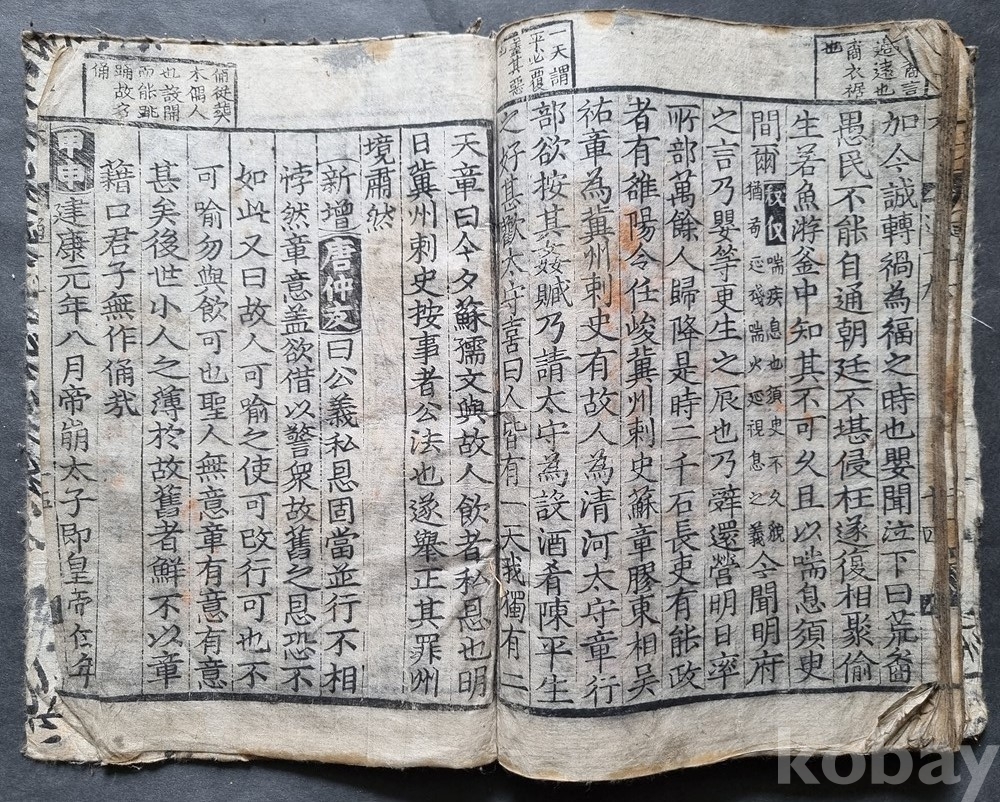 裔言
遠遠也
裔衣裾
也
加今誠轉禍為福之時也嬰聞泣下曰荒裔
愚民不能自通朝廷不堪侵枉遂復相聚偷
生若魚游釜中知其不可久且以喘息須臾
間爾
喘疾息也須臾不久貌
猶
延殘喘
延視息之義
今聞明府
之言乃嬰等更生之辰也乃辭還營明日率
所部萬餘人歸降是時二千石長吏有能政
者有雒陽令任峻冀州刺史蘇章膠東相吳
祐章為冀州刺史有故人為清河太守章行
部欲按其姦贓乃請太守為設酒肴陳平生
之好甚歡太守喜曰人皆有一天我獨有二
一天謂
平必覆
蓋其惡
也
天章曰今夕蘇孺文與故人飲者私恩也明
日冀州刺史按事者公法也遂舉正其罪州
境肅然
(新增)唐仲友曰公義私恩固當並行不相
悖然章意盖欲借以警衆故舊之恩恐不
如此又曰故人可喻之使可改行可也不
可喻勿與飲可也聖人無意章有意有意
甚矣後世小人之薄於故舊者鮮不以章
藉口君子無作俑哉
甲申建康元年八月帝崩太子即皇帝
俑從葬
木偶人
也設開
而能跳
踊故名
俑
kobay